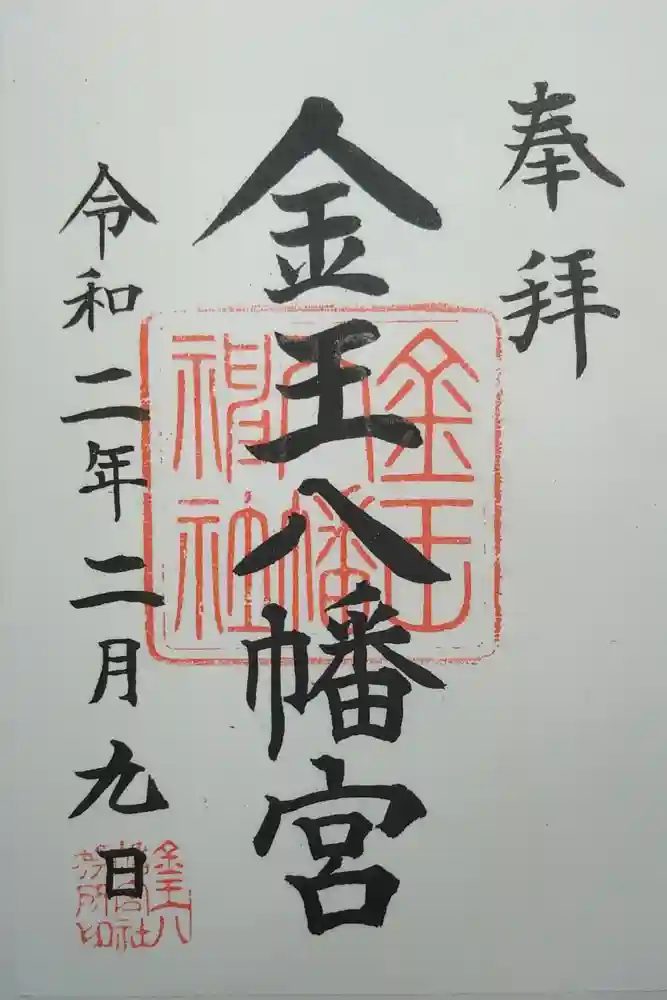 奉拝
金王八幡宮
令和二年二月九日
金王
八幡
神社
金王八
幡宮社
務所印